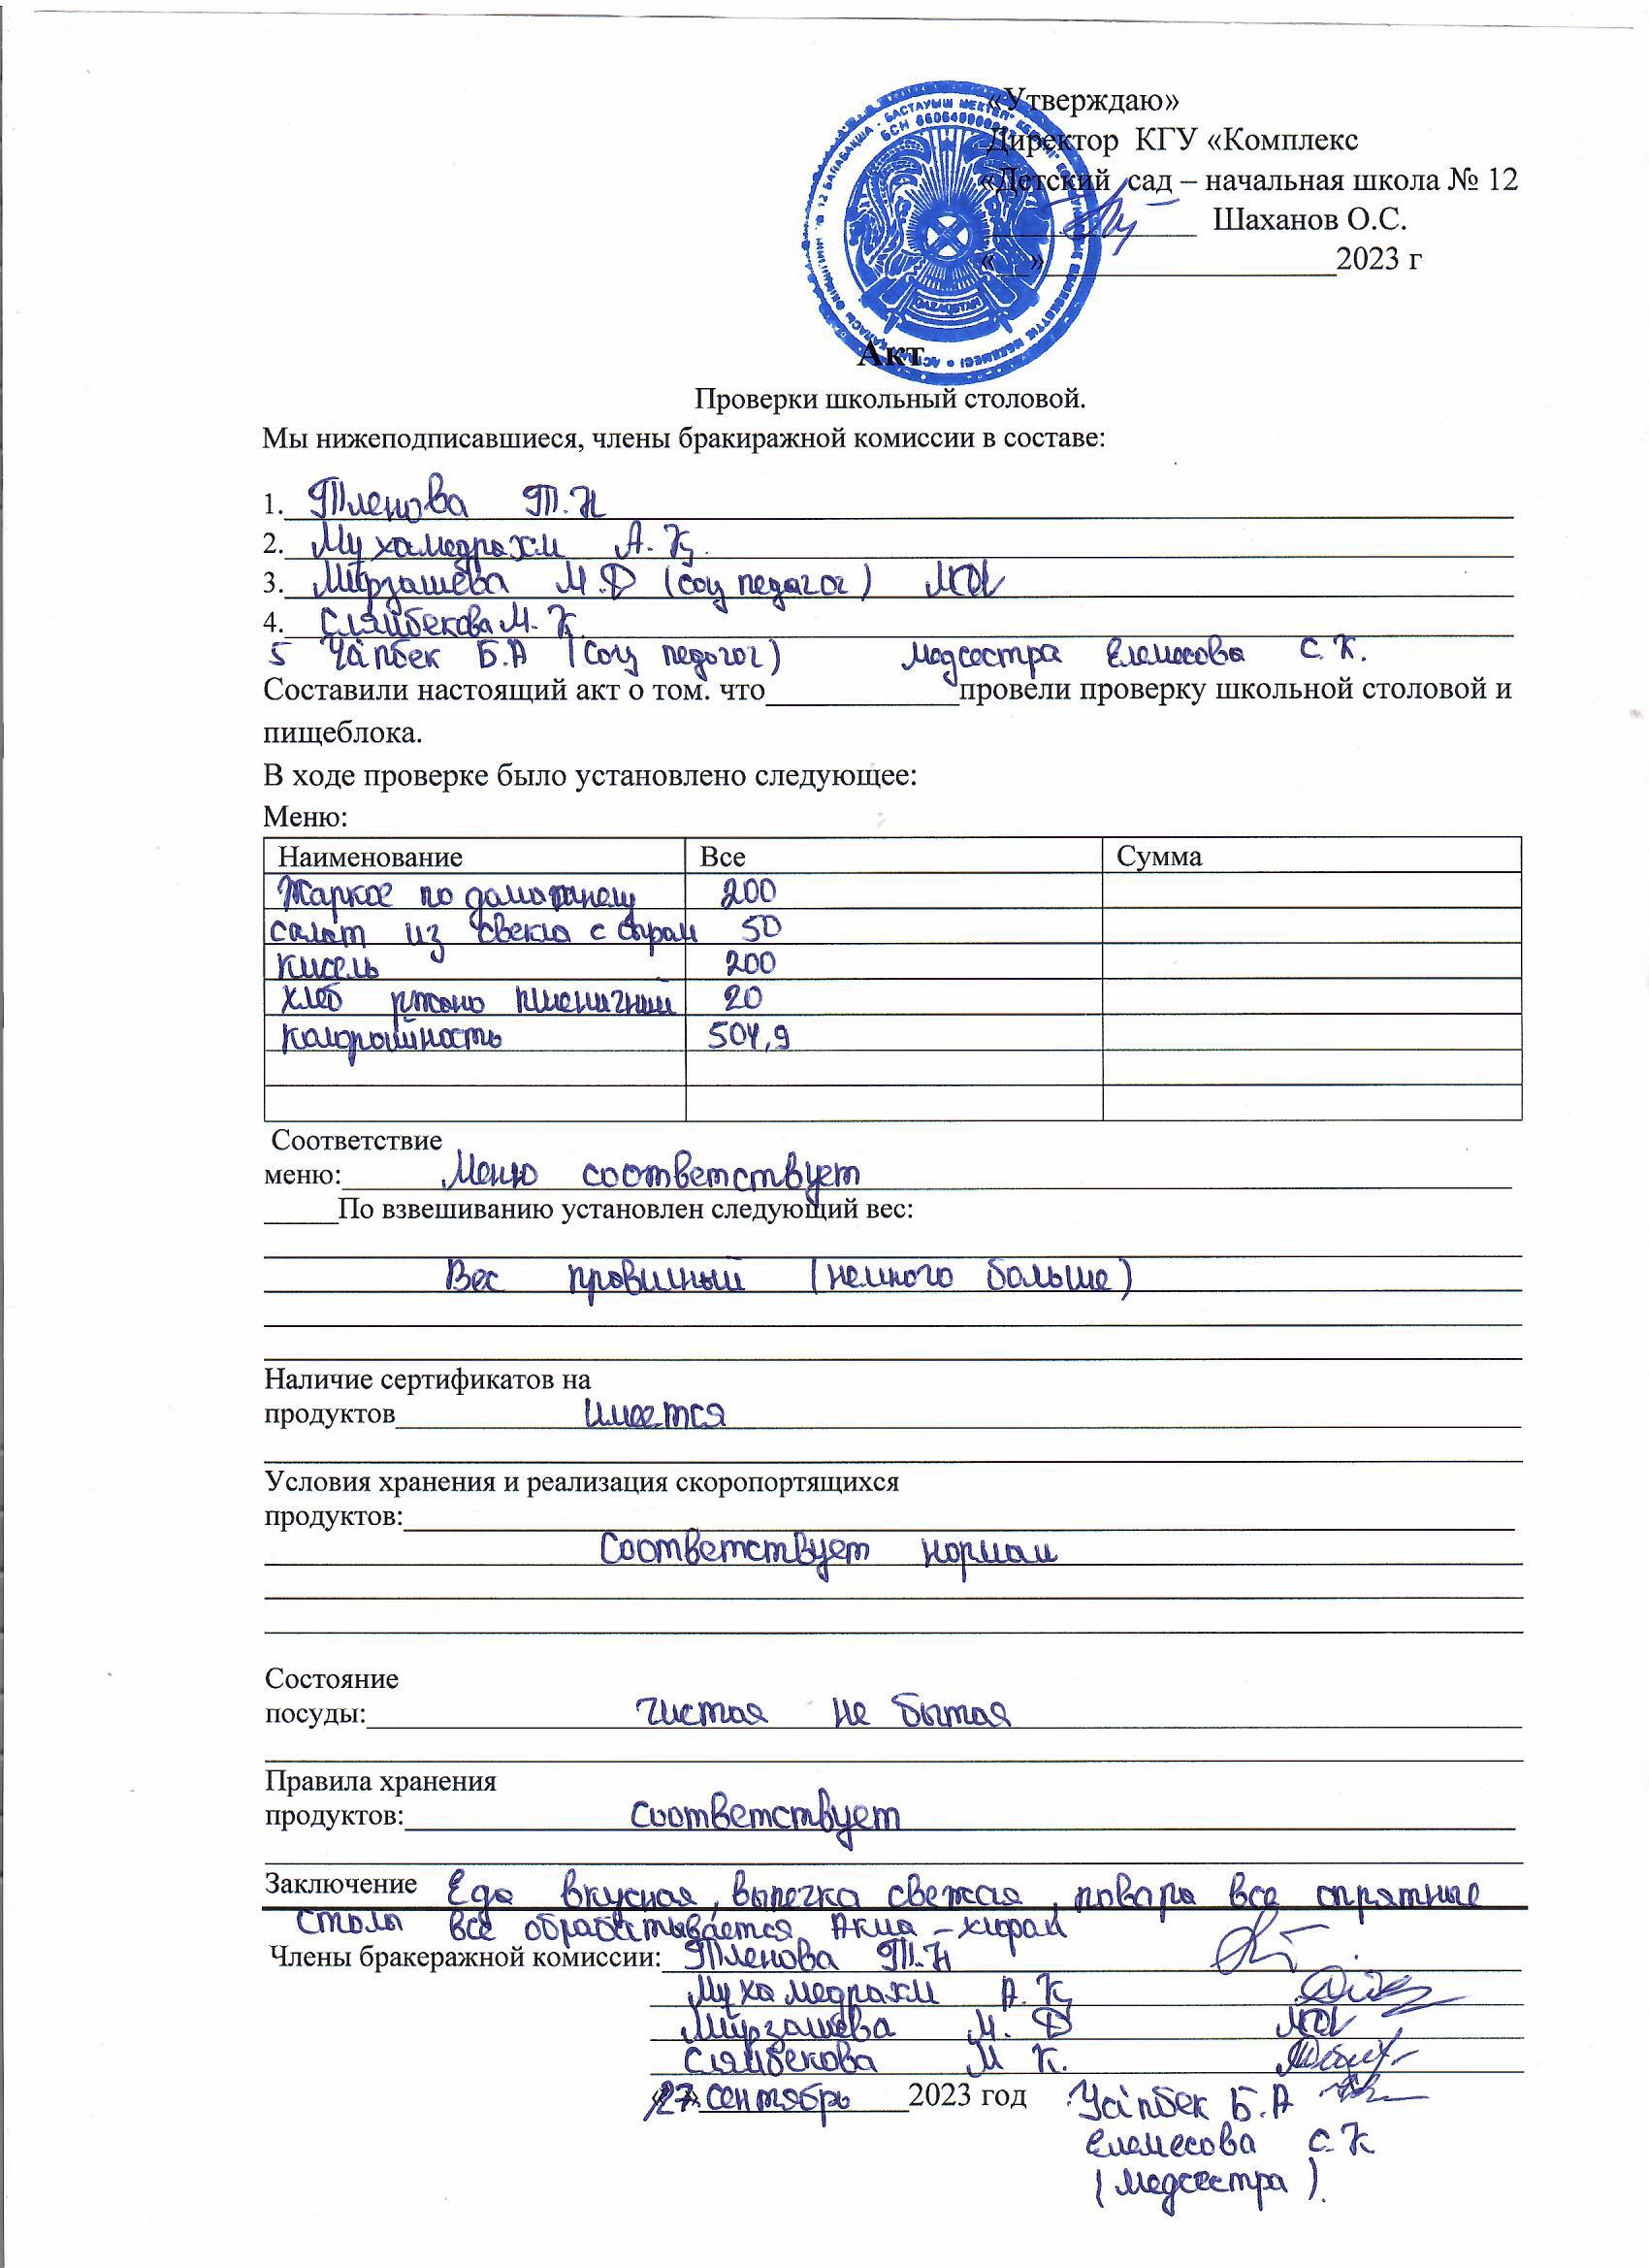 «Утверждаю»
Директор КГУ «Комплекс
«Детский сад – начальная школа № 12
Шаханов О.С.
«__»__________________2023 г
Акт
Проверки школьный столовой.
Мы нижеподписавшиеся, члены бракиражной комиссии в составе:
1. Тленова Т.Н
2. Мухамедрахм А.Қ.
3. Мирзашева М.Ф (соц педагог)
4. Сляйбекова М.К.
5 Уәпбек Б.А (Соц педогог) Медсестра Елемесова С.К.
Составили настоящий акт о том. что____________провели проверку школьной столовой и
пищеблока.
В ходе проверке было установлено следующее:
Меню:
Наименование Все Сумма
Жаркое по домашнему 200
салат из свекла с сыром 50
Кисель 200
хлеб ржано пшеничный 20
Калорийность 504,9
Соответствие
меню: Меню соответствует
_____По взвешиванию установлен следующий вес:
Вес правильный (немного больше)
Наличие сертификатов на
продуктов Имеется
Условия хранения и реализация скоропортящихся
продуктов:
Соответствует нормам
Состояние
посуды: чистая не бытая
Правила хранения
продуктов: Соответствует
Заключение Еда вкусная, выпечка свежая, повара все опрятные
столы все обрабатывается
Члены бракеражной комиссии: Тленова Т.Н
Мухамедрахм А.Қ
Мирзашева М.Ф
Сляйбекова М К.
«27» сентябрь 2023 год Уәпбек Б.А
Елемесова С.К
(Медсестра).